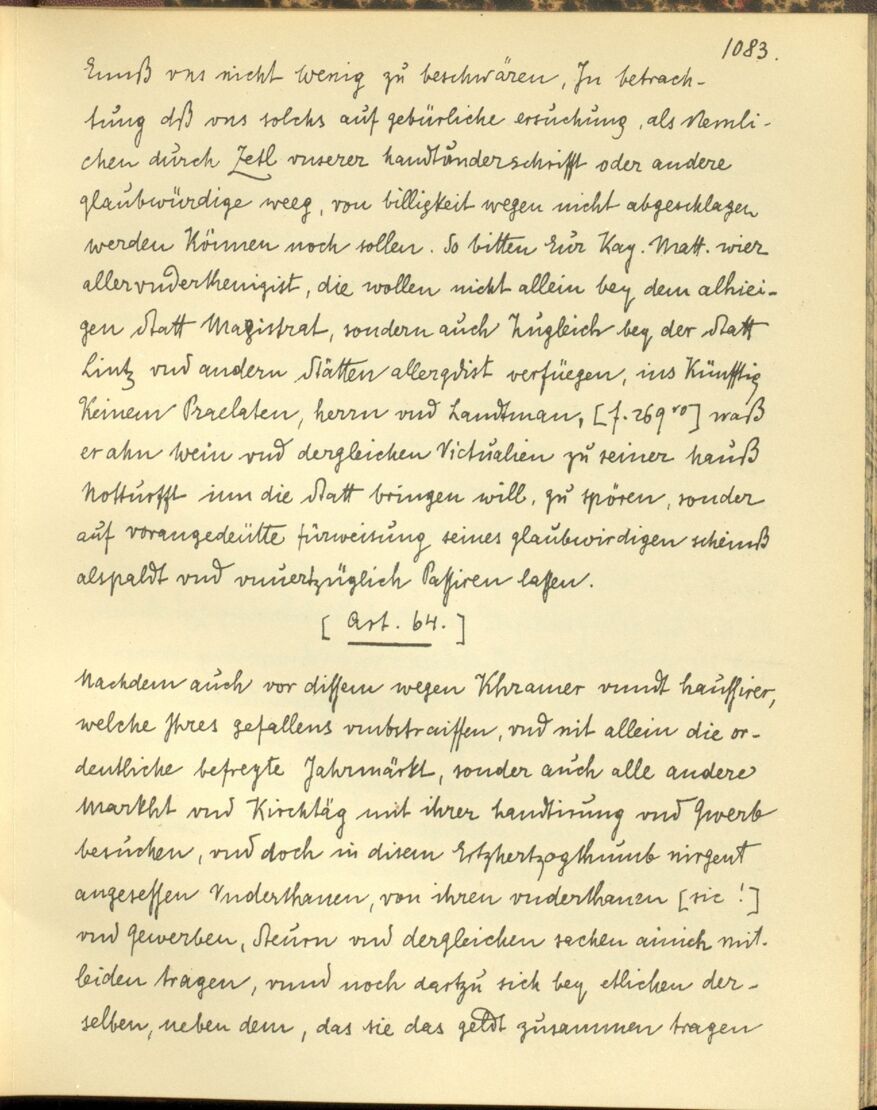 1083.
Emuß vns nicht wenig zu beschwären, In betrach-
tung dß vns solchs auf gebürliche ersuchung, als Nemli-
chen durch Zetl vnserer handtvnderschrifft oder andere
glaubwürdige weeg, von billigkeit wegen nicht abgeschlagen
werden Können noch sollen. So bitten Eur Kay. Matt. wier
allervnderthenigist, die wollen nicht allein bey dem alhiei-
gen Statt Magistrat, sondern auch Zugleich bey der Statt
Lintz vnd andern Stätten allergdist verfüegen, ins Künfftig
Keinem Praelaten, herrn vnd Landtman, [f. 269 vo] waß
er ahn wein vnd dergleichen Victualien zu seiner hauß
Notturfft inn die Statt bringen will, zu spören, sonder
auf vorangedeütte fürweisung seines glaubwirdigen scheinß
alspaldt vnd vnuertzüglich Passiren lassen.
[ Art. 64. ]
Nachdem auch vor dissem wegen Khramer vnndt haussirer,
welche Ihres gefallens vmbstraiffen, vnd nit allein die or-
dentliche befreyte Jahrmärkt, sonder auch alle andere
Markht vnd Kirchtäg mit ihrer handtirung vnd Gwerb
besuchen, vnd doch in disem Ertzhertzogthumb nirgent
angesessen Vnderthanen, von ihren vnderthanen [sic !]
vnd Gewerben, Steurn vnd dergleichen sachen ainich mit-
leiden tragen, vnnd noch dartzu sich bey etlichen der-
selben, neben dem, das sie das geldt zusammen tragen